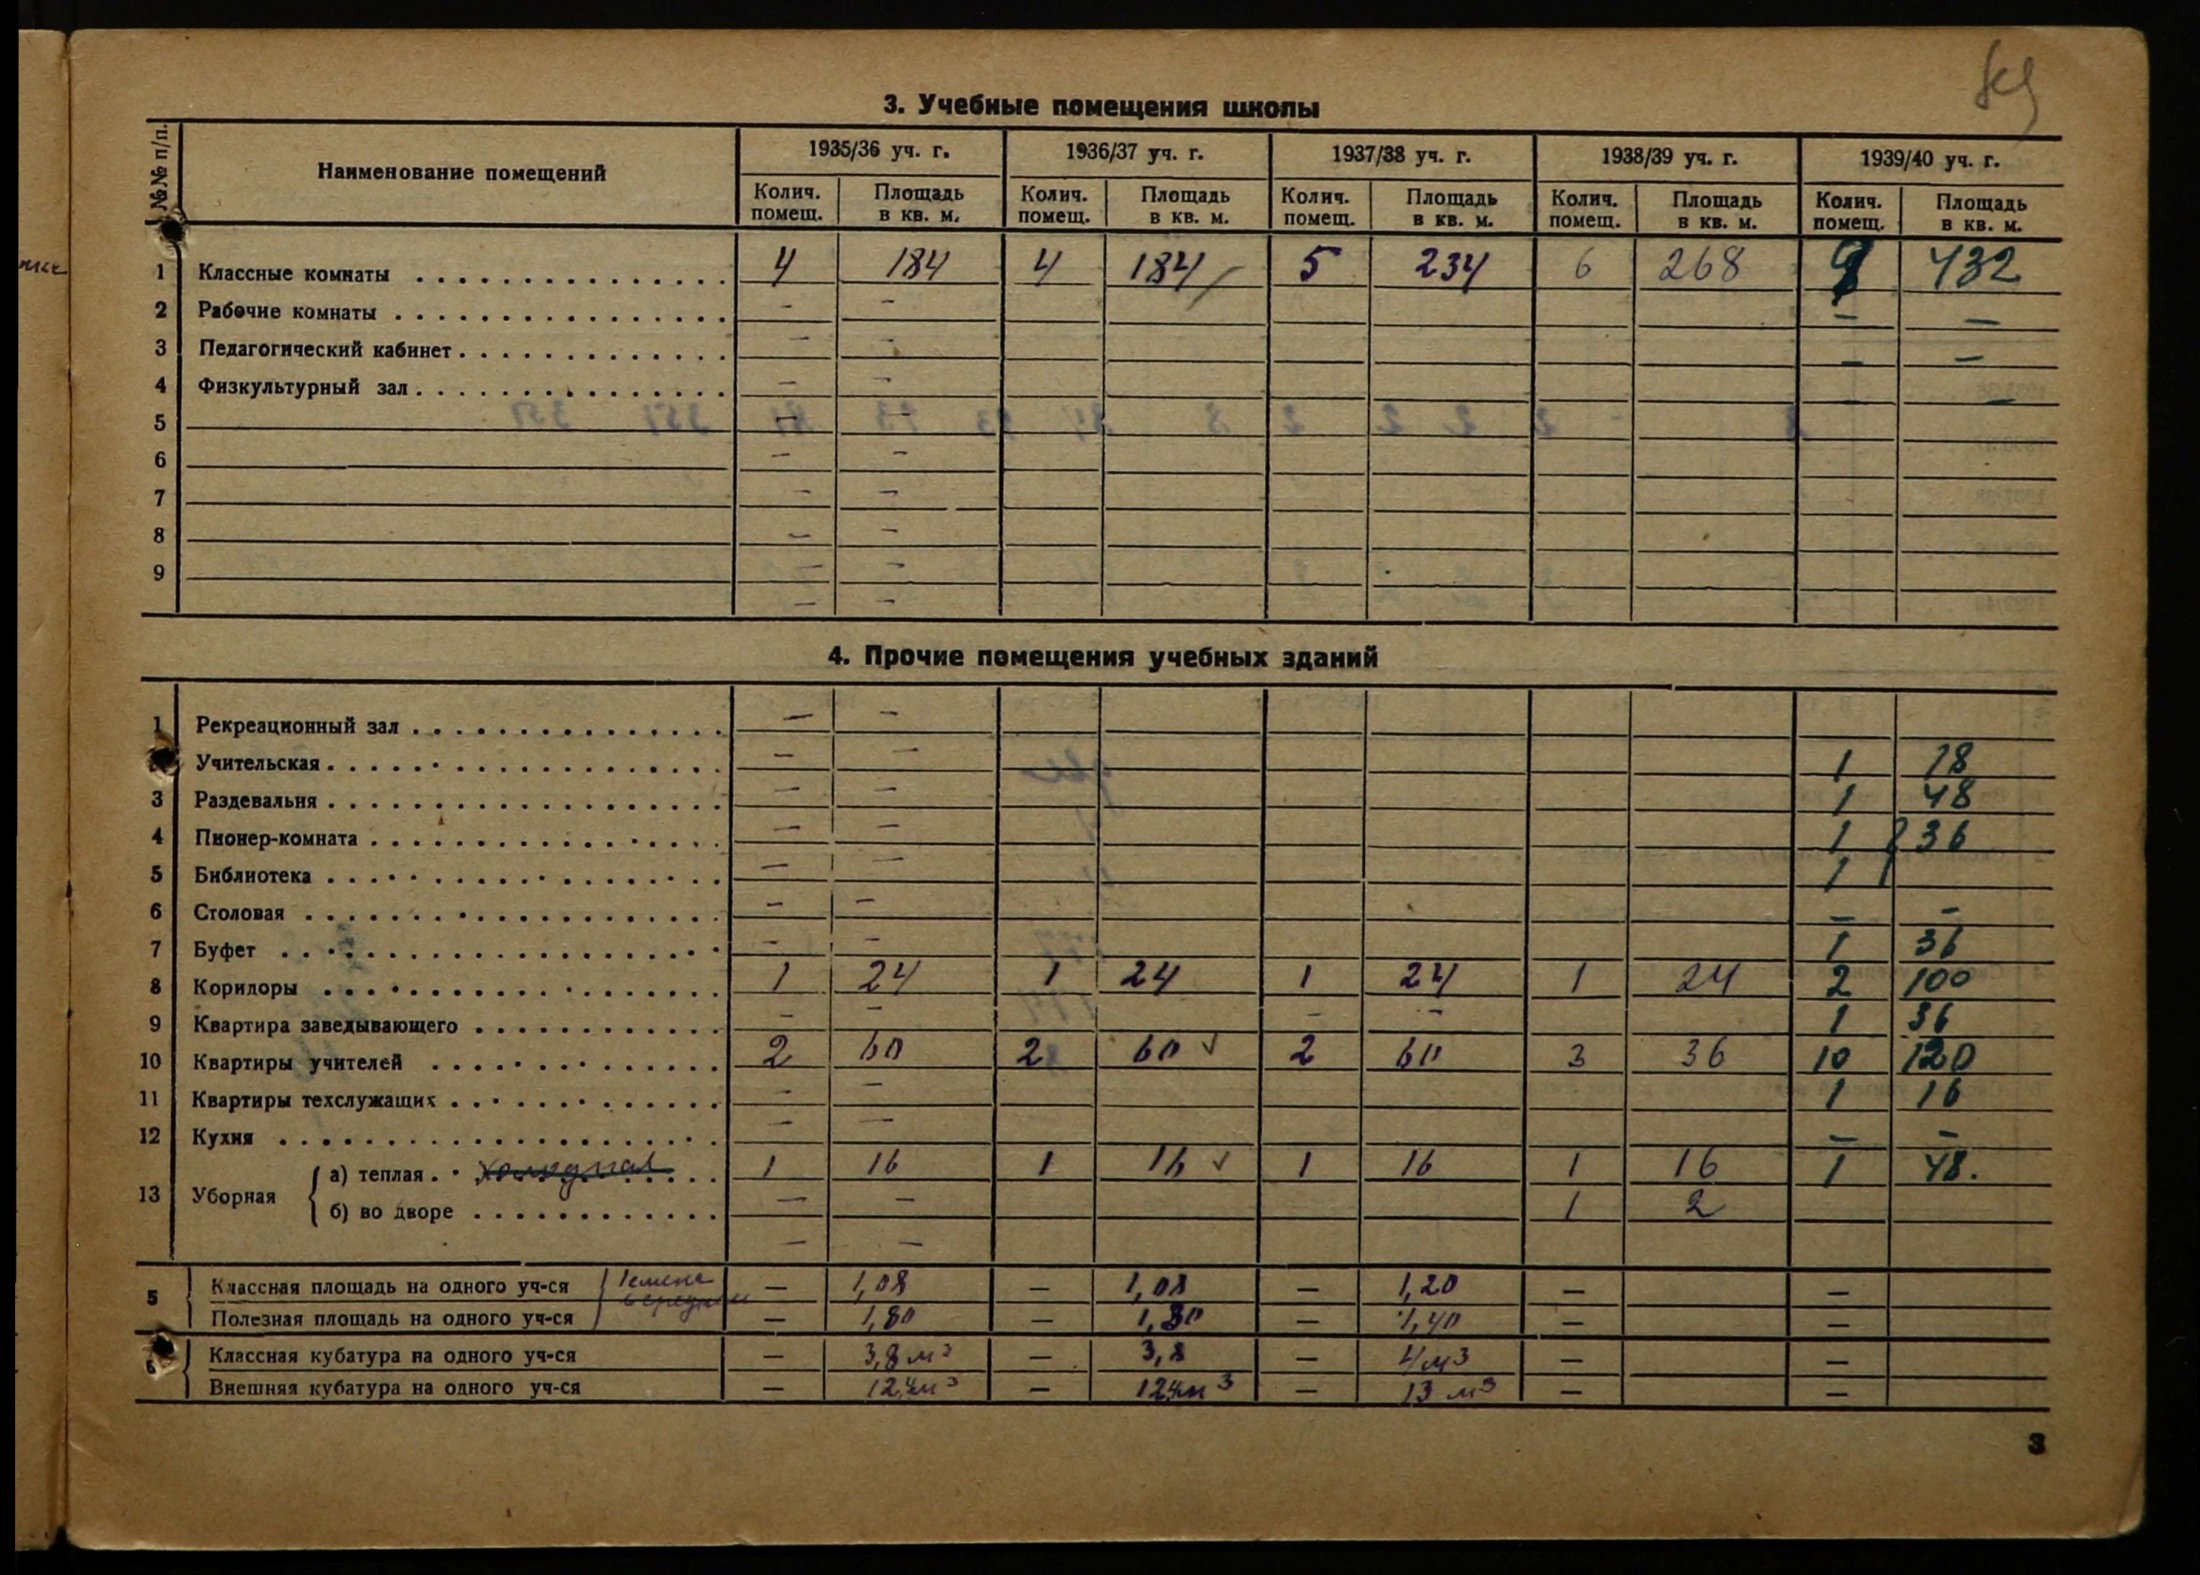 3. Учебные помещения школы
№№ п/п. Наименование помещений 1935/36 уч. г. 1936/37 уч. г. 1937/38 уч. г. 1938/39 уч. г. 1939/40 уч. г.
Колич. помещ. Площадь в кв. м. Колич. помещ. Площадь в кв. м. Колич. помещ. Площадь в кв. м. Колич. помещ. Площадь в кв. м. Колич. помещ. Площадь в кв. м.
1 Классные комнаты 4 184 4 184 5 234 6 268 9 432
2 Рабочие комнаты — — — —
3 Педагогический кабинет — — — —
4 Физкультурный зал — — — —
5 — —
6 — —
7 — —
8 — —
9 — —
— —
4. Прочие помещения учебных зданий
1 Рекреационный зал — —
Учительская — — 1 18
3 Раздевальня — — 1 48
4 Пионер-комната — — 1 36
5 Библиотека — — 1
6 Столовая — — — —
7 Буфет — — 1 36
8 Коридоры 1 24 1 24 1 24 1 24 2 100
9 Квартира заведывающего — — — — 1 36
10 Квартиры учителей 2 60 2 60 ✓ 2 60 3 36 10 120
11 Квартиры техслужащих — — 1 16
12 Кухня — — — —
13 Уборная а) теплая холодная 1 16 1 16 ✓ 1 16 1 16 1 48.
б) во дворе — — 1 2
— —
5 Классная площадь на одного уч-ся — 1,08 — 1,08 — 1,20 — —
Полезная площадь на одного уч-ся — 1,80 — 1,80 — 1,40 — —
6 Классная кубатура на одного уч-ся — 3,8 м³ — 3,8 — 4 м³ — —
Внешняя кубатура на одного уч-ся — 12,4м³ — 12,4м³ — 13 м³ — —
3